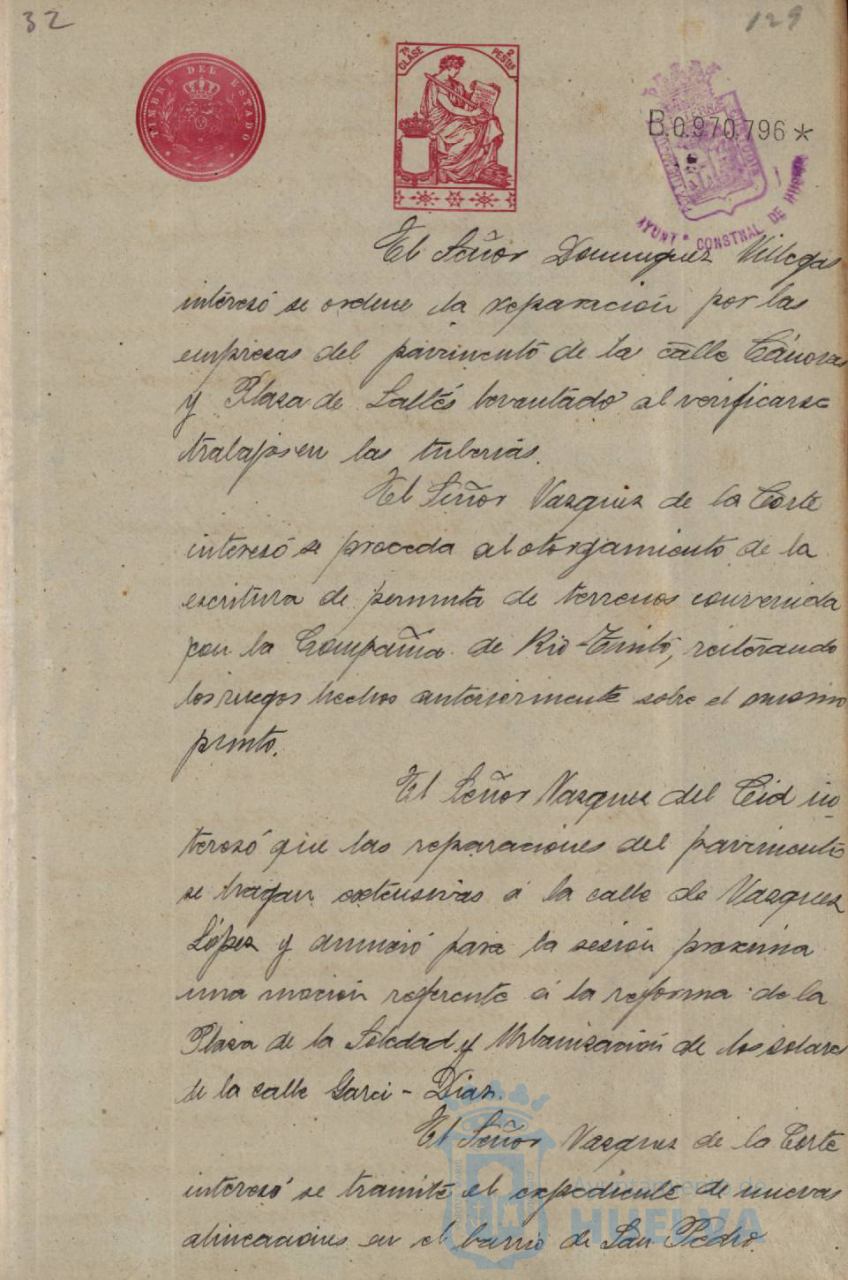 32
129
TIMBRE DEL ESTADO
7ª CLASE 2 PESTAS
B.0.970.796*
AYUNTº CONSTNAL DE HUELVA
El Señor Dominguez Villegas
interesó se ordene la reparación por las
empresas del pavimento de la calle Cánovas
y Plaza de Saltés levantado al verificarse
trabajos en las tuberias.
El Señor Vazquez de la Corte
interesó se proceda al otorgamiento de la
escritura de permuta de terrenos convenida
con la Compañia de Rio-Tinto, reiterando
los ruegos hechos anteriormente sobre el mismo
punto.
El Señor Vazquez del Cid in
teresó que las reparaciones del pavimento
se hagan extensivas á la calle de Vazquez
López y anunció para la sesión proxima
una moción referente á la reforma de la
Plaza de la Soledad y Urbanización de los solares
de la calle Garci-Diaz.
El Señor Vazquez de la Corte
interesó se tramite el expediente de nuevas
alineaciones en el barrio de San Pedro.
Ayuntamiento de
HUELVA